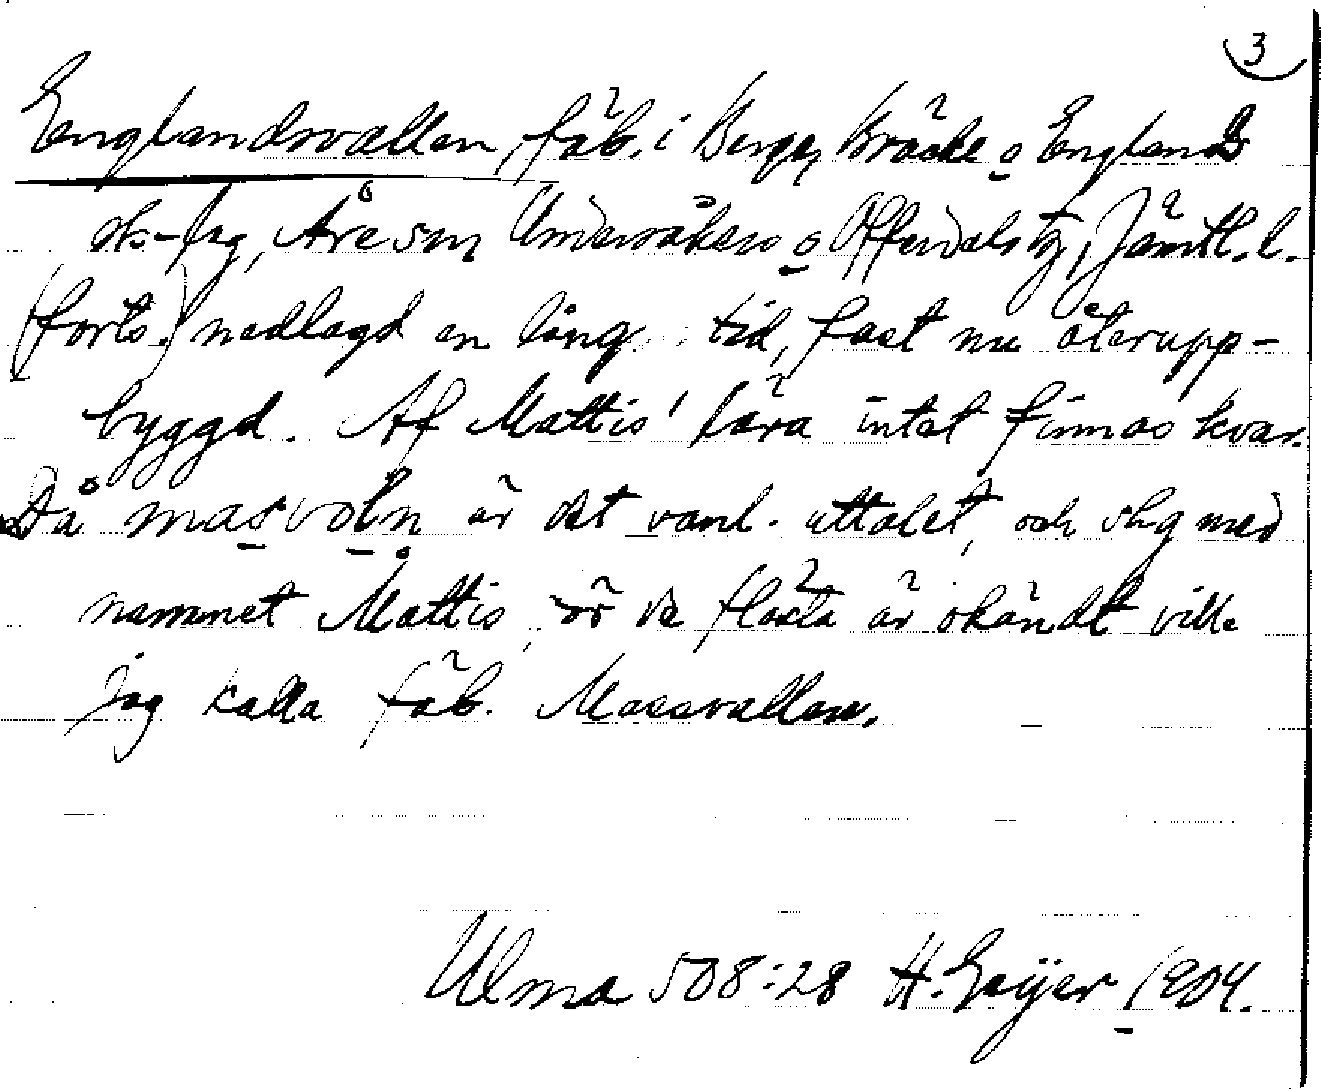 3
Englandsvallen, fäb. i Berge, Bräcke o England
sk-lag, Åre sn, Undersåkers o Offerdals tg, Jämtl. l.
(forts.) nedlagd en lång tid, fast nu återupp-
byggd. Af Mattis' lära intet finnas kvar.
Då masvoln är det vanl. uttalet, och slug med
namnet Mattis, är de flesta är okändt ville
jag kalla fäb. Massvallen.
Ulma 508:28 H. Geijer 1904.